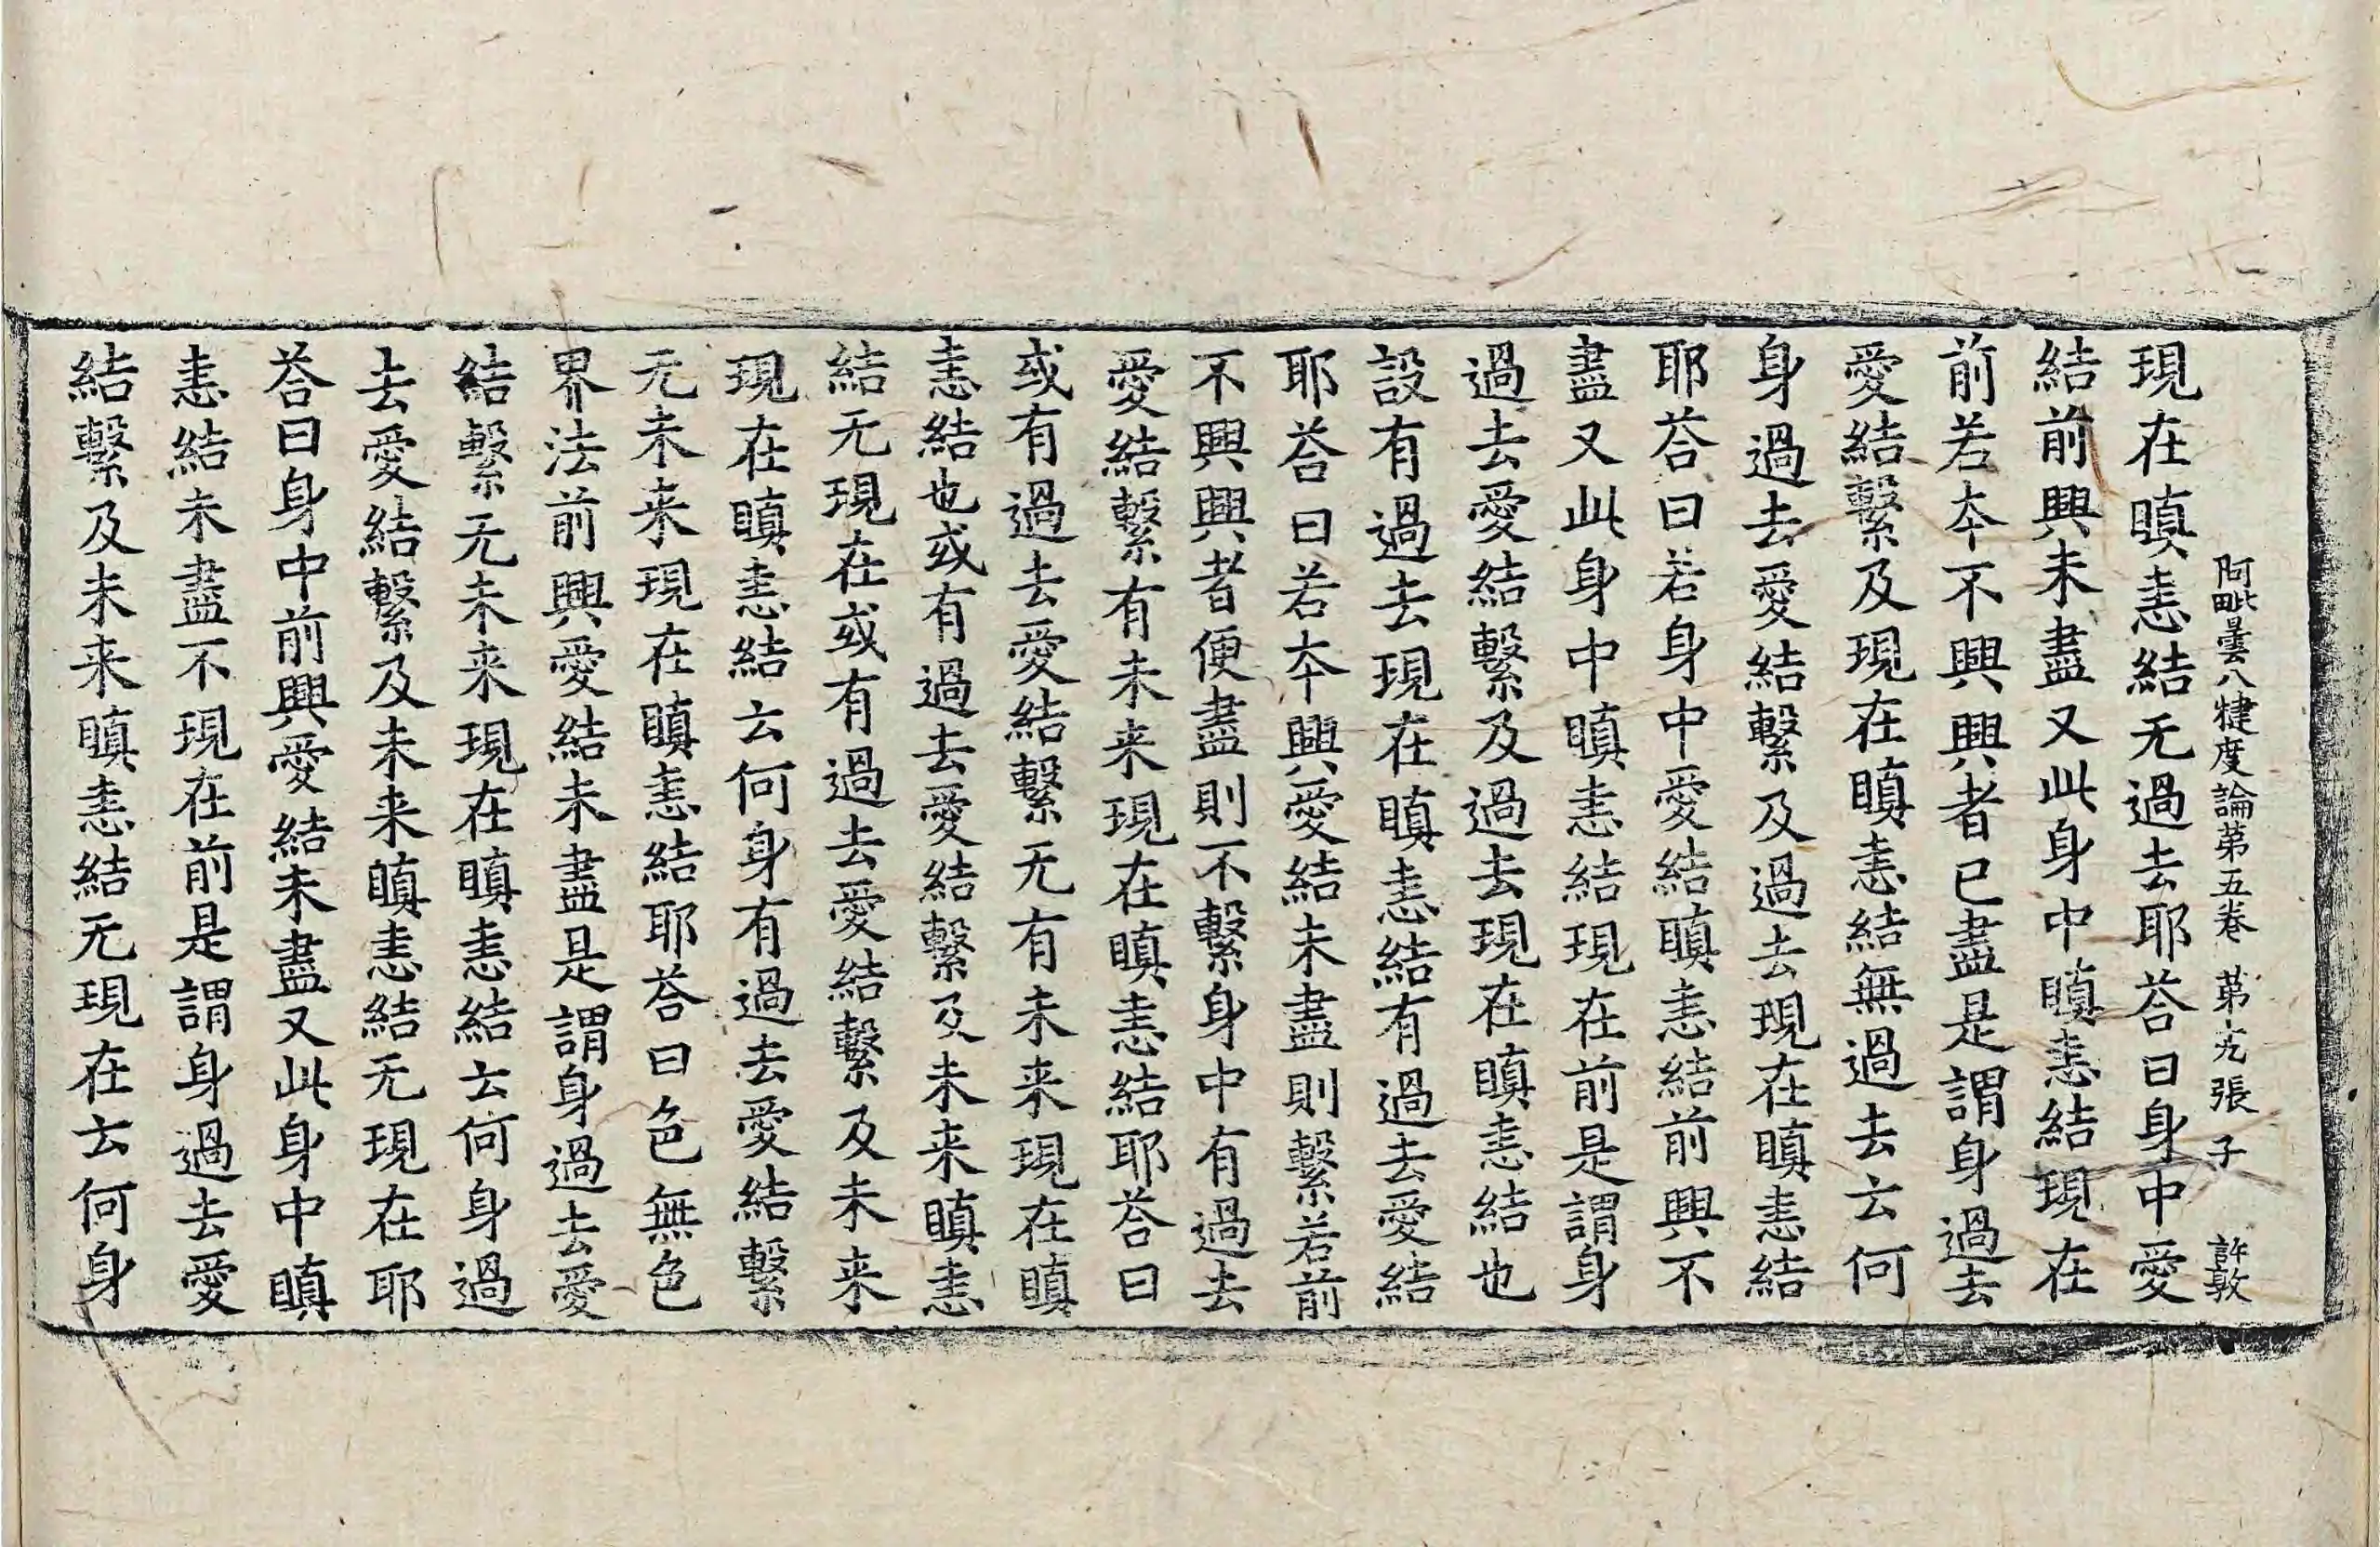 阿毗曇八犍度論第五卷 第六張 子 許敦
現在瞋恚結无過去耶荅曰身中愛
結前興未盡又此身中瞋恚結現在
前若本不興興者已盡是謂身過去
愛結繫及現在瞋恚結無過去云何
身過去愛結繫及過去現在瞋恚結
耶荅曰若身中愛結瞋恚結前興不
盡又此身中瞋恚結現在前是謂身
過去愛結繫及過去現在瞋恚結也
設有過去現在瞋恚結有過去愛結
耶荅曰若本興愛結未盡則繫若前
不興興者便盡則不繫身中有過去
愛結繫有未来現在瞋恚結耶荅曰
或有過去愛結繫无有未来現在瞋
恚結也或有過去愛結繫及未来瞋恚
結无現在或有過去愛結繫及未来
現在瞋恚結云何身有過去愛結繫
无未来現在瞋恚結耶荅曰色無色
界法前興愛結未盡是謂身過去愛
結繫无未来現在瞋恚結云何身過
去愛結繫及未来瞋恚結无現在耶
荅曰身中前興愛結未盡又此身中瞋
恚結未盡不現在前是謂身過去愛
結繫及未来瞋恚結无現在云何身